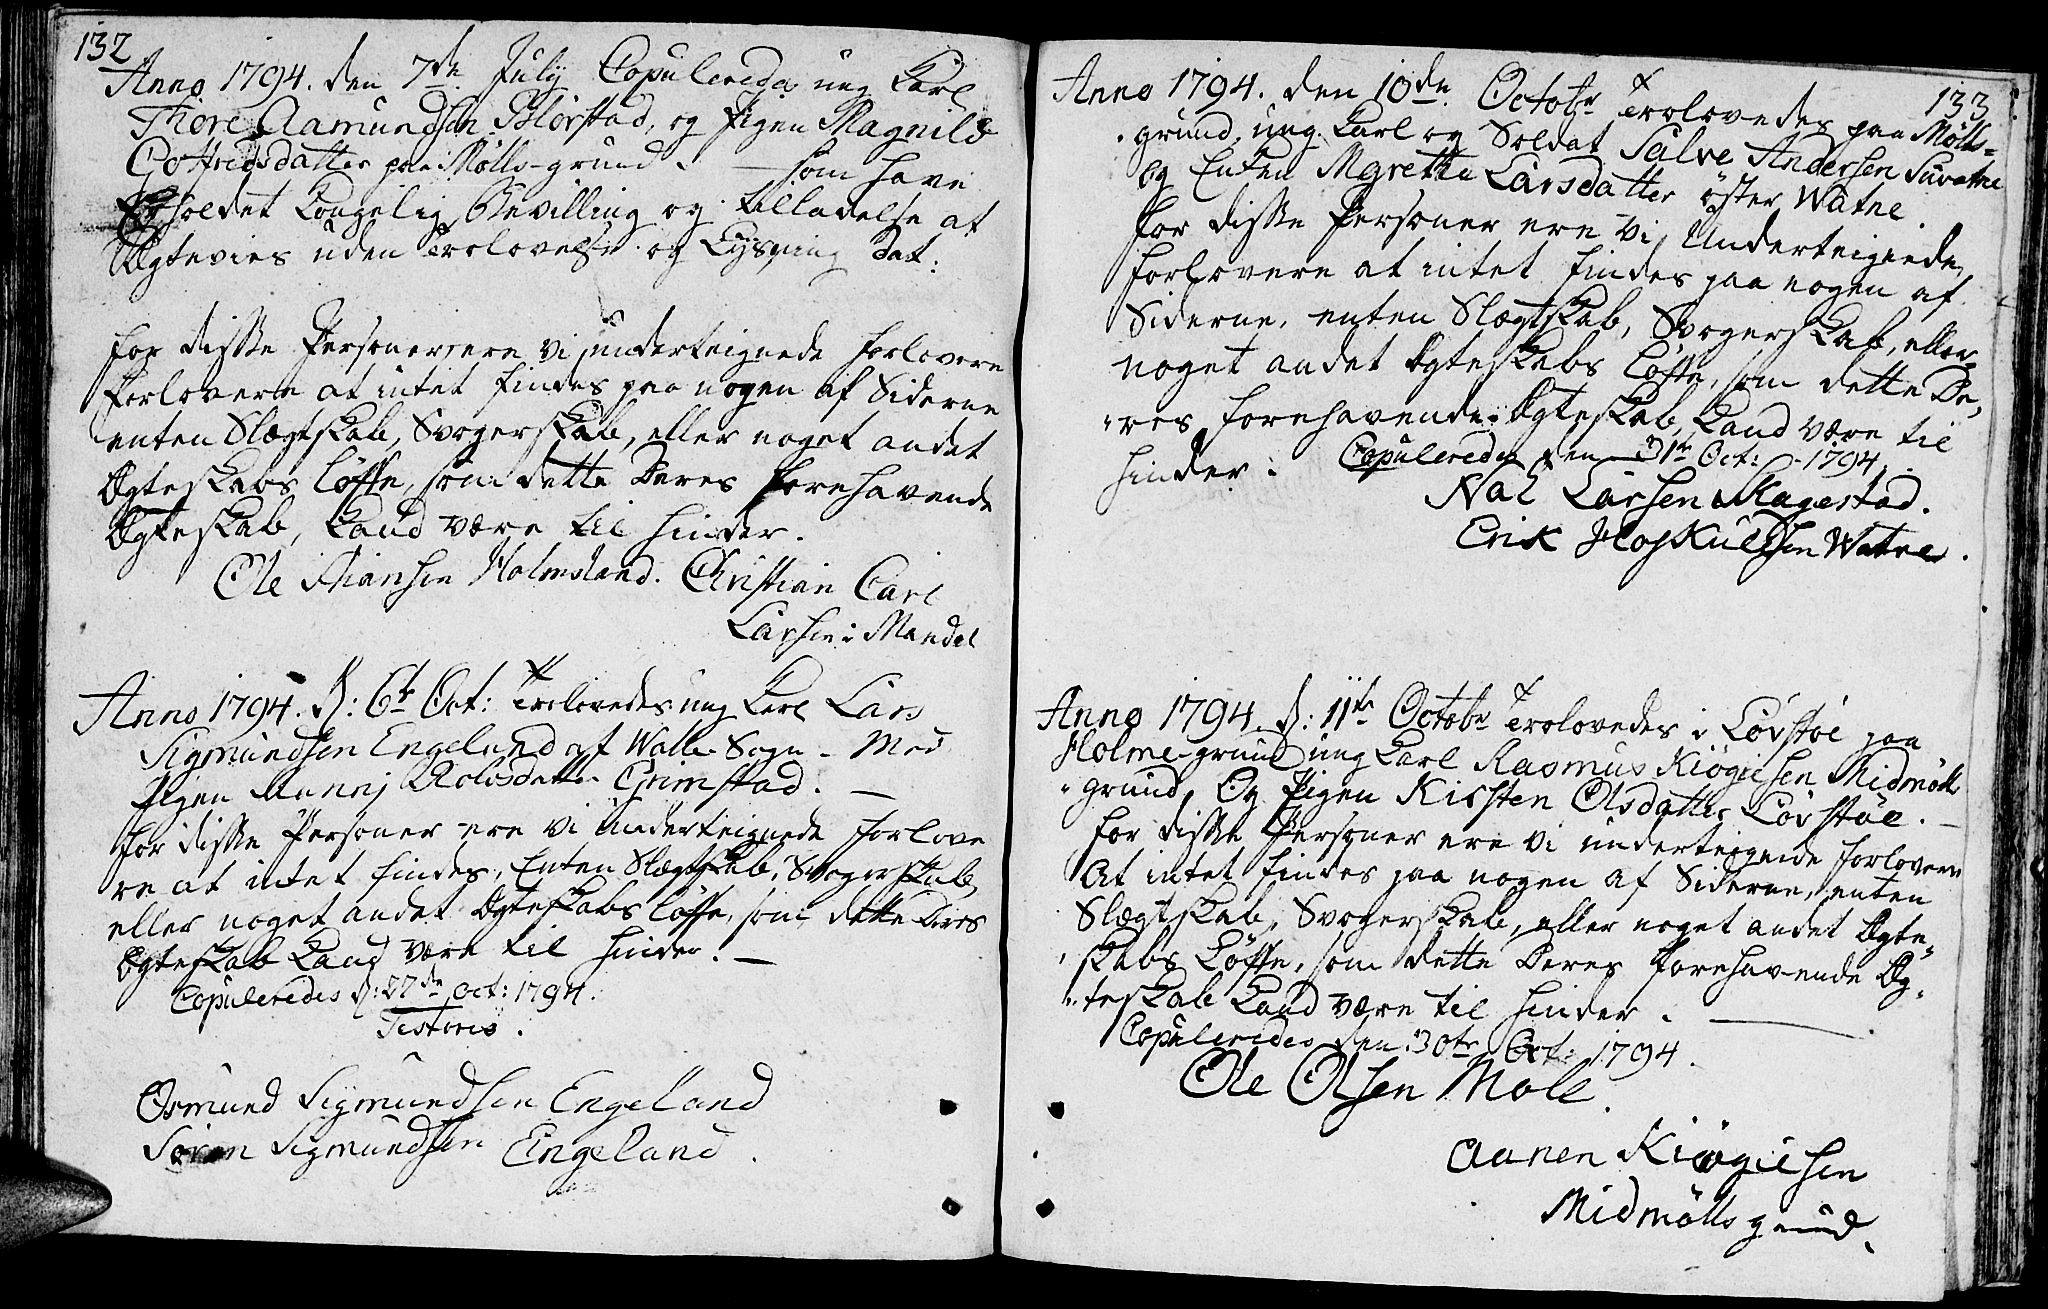 132
Anno 1794. den 7de July Copulerede ung Karl
Thore Aamundsen Blørstad, og Pigen Magnild
Gotfredsdatter paa Mølls-grund. — som have
Erholdet Kongelig Bevilling og tilladelse at
Ægtevies uden Trolovelse og Lysning dat:
For disse Personer ere vi underteignede forlovere
Forlovere at intet findes paa nogen af Siderne
enten Slægtskab, Svogerskab, eller noget andet
Ægteskabs Løfte, som dette Deres forehavende
Ægteskab, Kand være til hinder.
Ole Stiansen Holmsland. Christian Carl
Larsen i Mandal
Anno 1794. d: 6te Oct: Trolovedes ung Karl Lars
Sigmundsen Engeland af Walle Sogn - Med
Pigen Gunnj Rolvsdatter Grimstad. —
For disse Personer ere vi underteignede forlove
re at intet findes, Enten Slægtskab, Svogerskab
eller noget andet Ægteskabs løfte, som dette Deres
Ægteskab Kand være til hinder. —
Copuleredes d: 27de Oct: 1794.
Testoris.
Osmund Sigmundsen Engeland
Søren Sigmundsen Engeland.
133
Anno 1794. den 10de Octobr Trolovedes paa Mølls-
grund, ung Karl og Soldat Salve Andersen Suvatne
og Enken Mgrette Larsdatter öster Watne.
For disse Personer ere vi Underteignede
Forlovere at intet findes paa nogen af
Siderne, enten Slægtskab, Svogerskab, eller
noget andet Ægteskabs Løfte, som dette De,
„res forehavende Ægteskab, Kand være til
hinder. Copuleredes den 31te Oct: 1794.
Nal Larsen Skagestad.
Erik Hoskuldsen Watne.
Anno 1794. d: 11te Octobr Trolovedes i Løvstøe paa
Holme-grund ung Karl Rasmus Kiøgiesen Midmöll
„grund, Og Pigen Kirsten Olsdatter Løvstøe. —
For disse Personer ere vi underteignede forlovere
At intet findes paa nogen af Siderne, enten
Slægtskab, Svogerskab, eller noget andet Ægte„
„skabs Løfte, som dette Deres forehavende Æg„
„teskab Kand være til hinder. —
Copuleredes den 30te Oct: 1794.
Ole Olsen Moll.
Aanen Kiøgiesen
Midmölls grund.